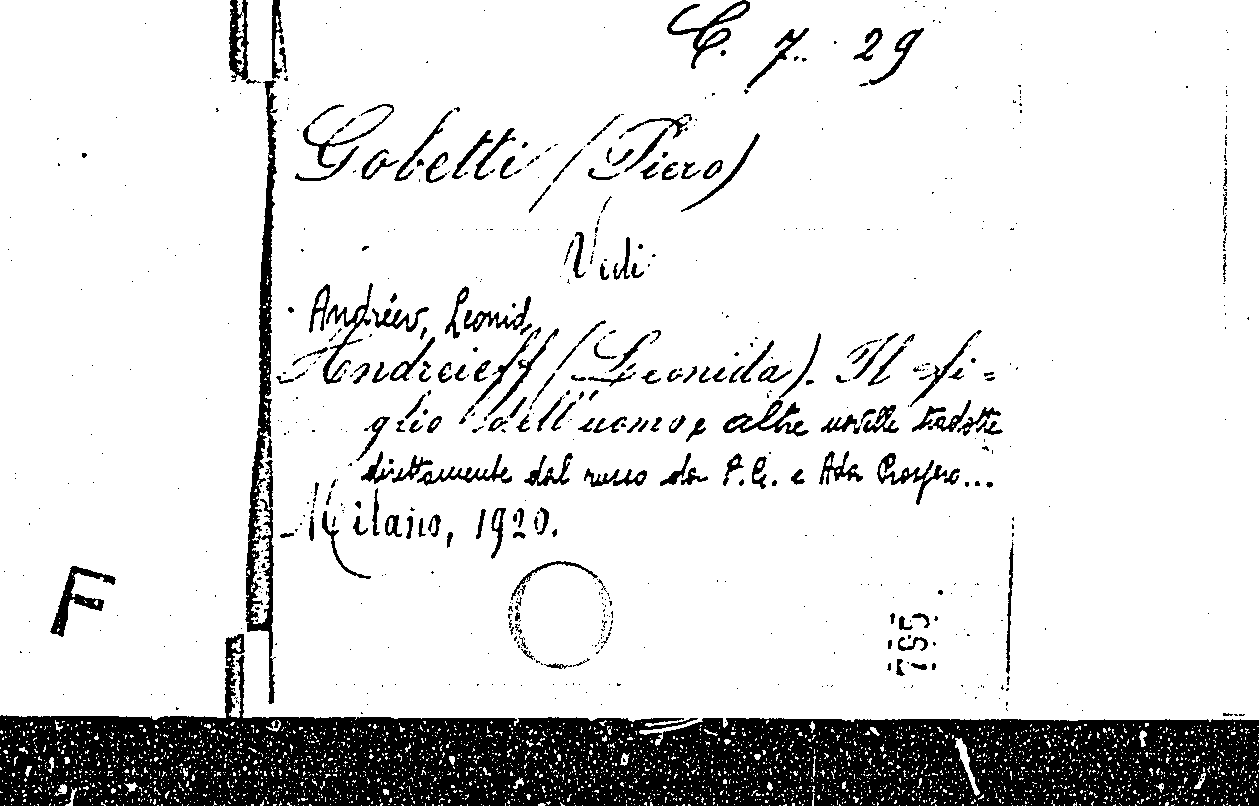 C. 7. 29
Gobetti (Piero)
Vedi
Andréev, Leonid
Andreieff (Leonida). Il fi=
glio dell'uomo e altre novelle tradotte
direttamente dal russo da P.G. e Ada Prospero...
Milano, 1920.
F
795